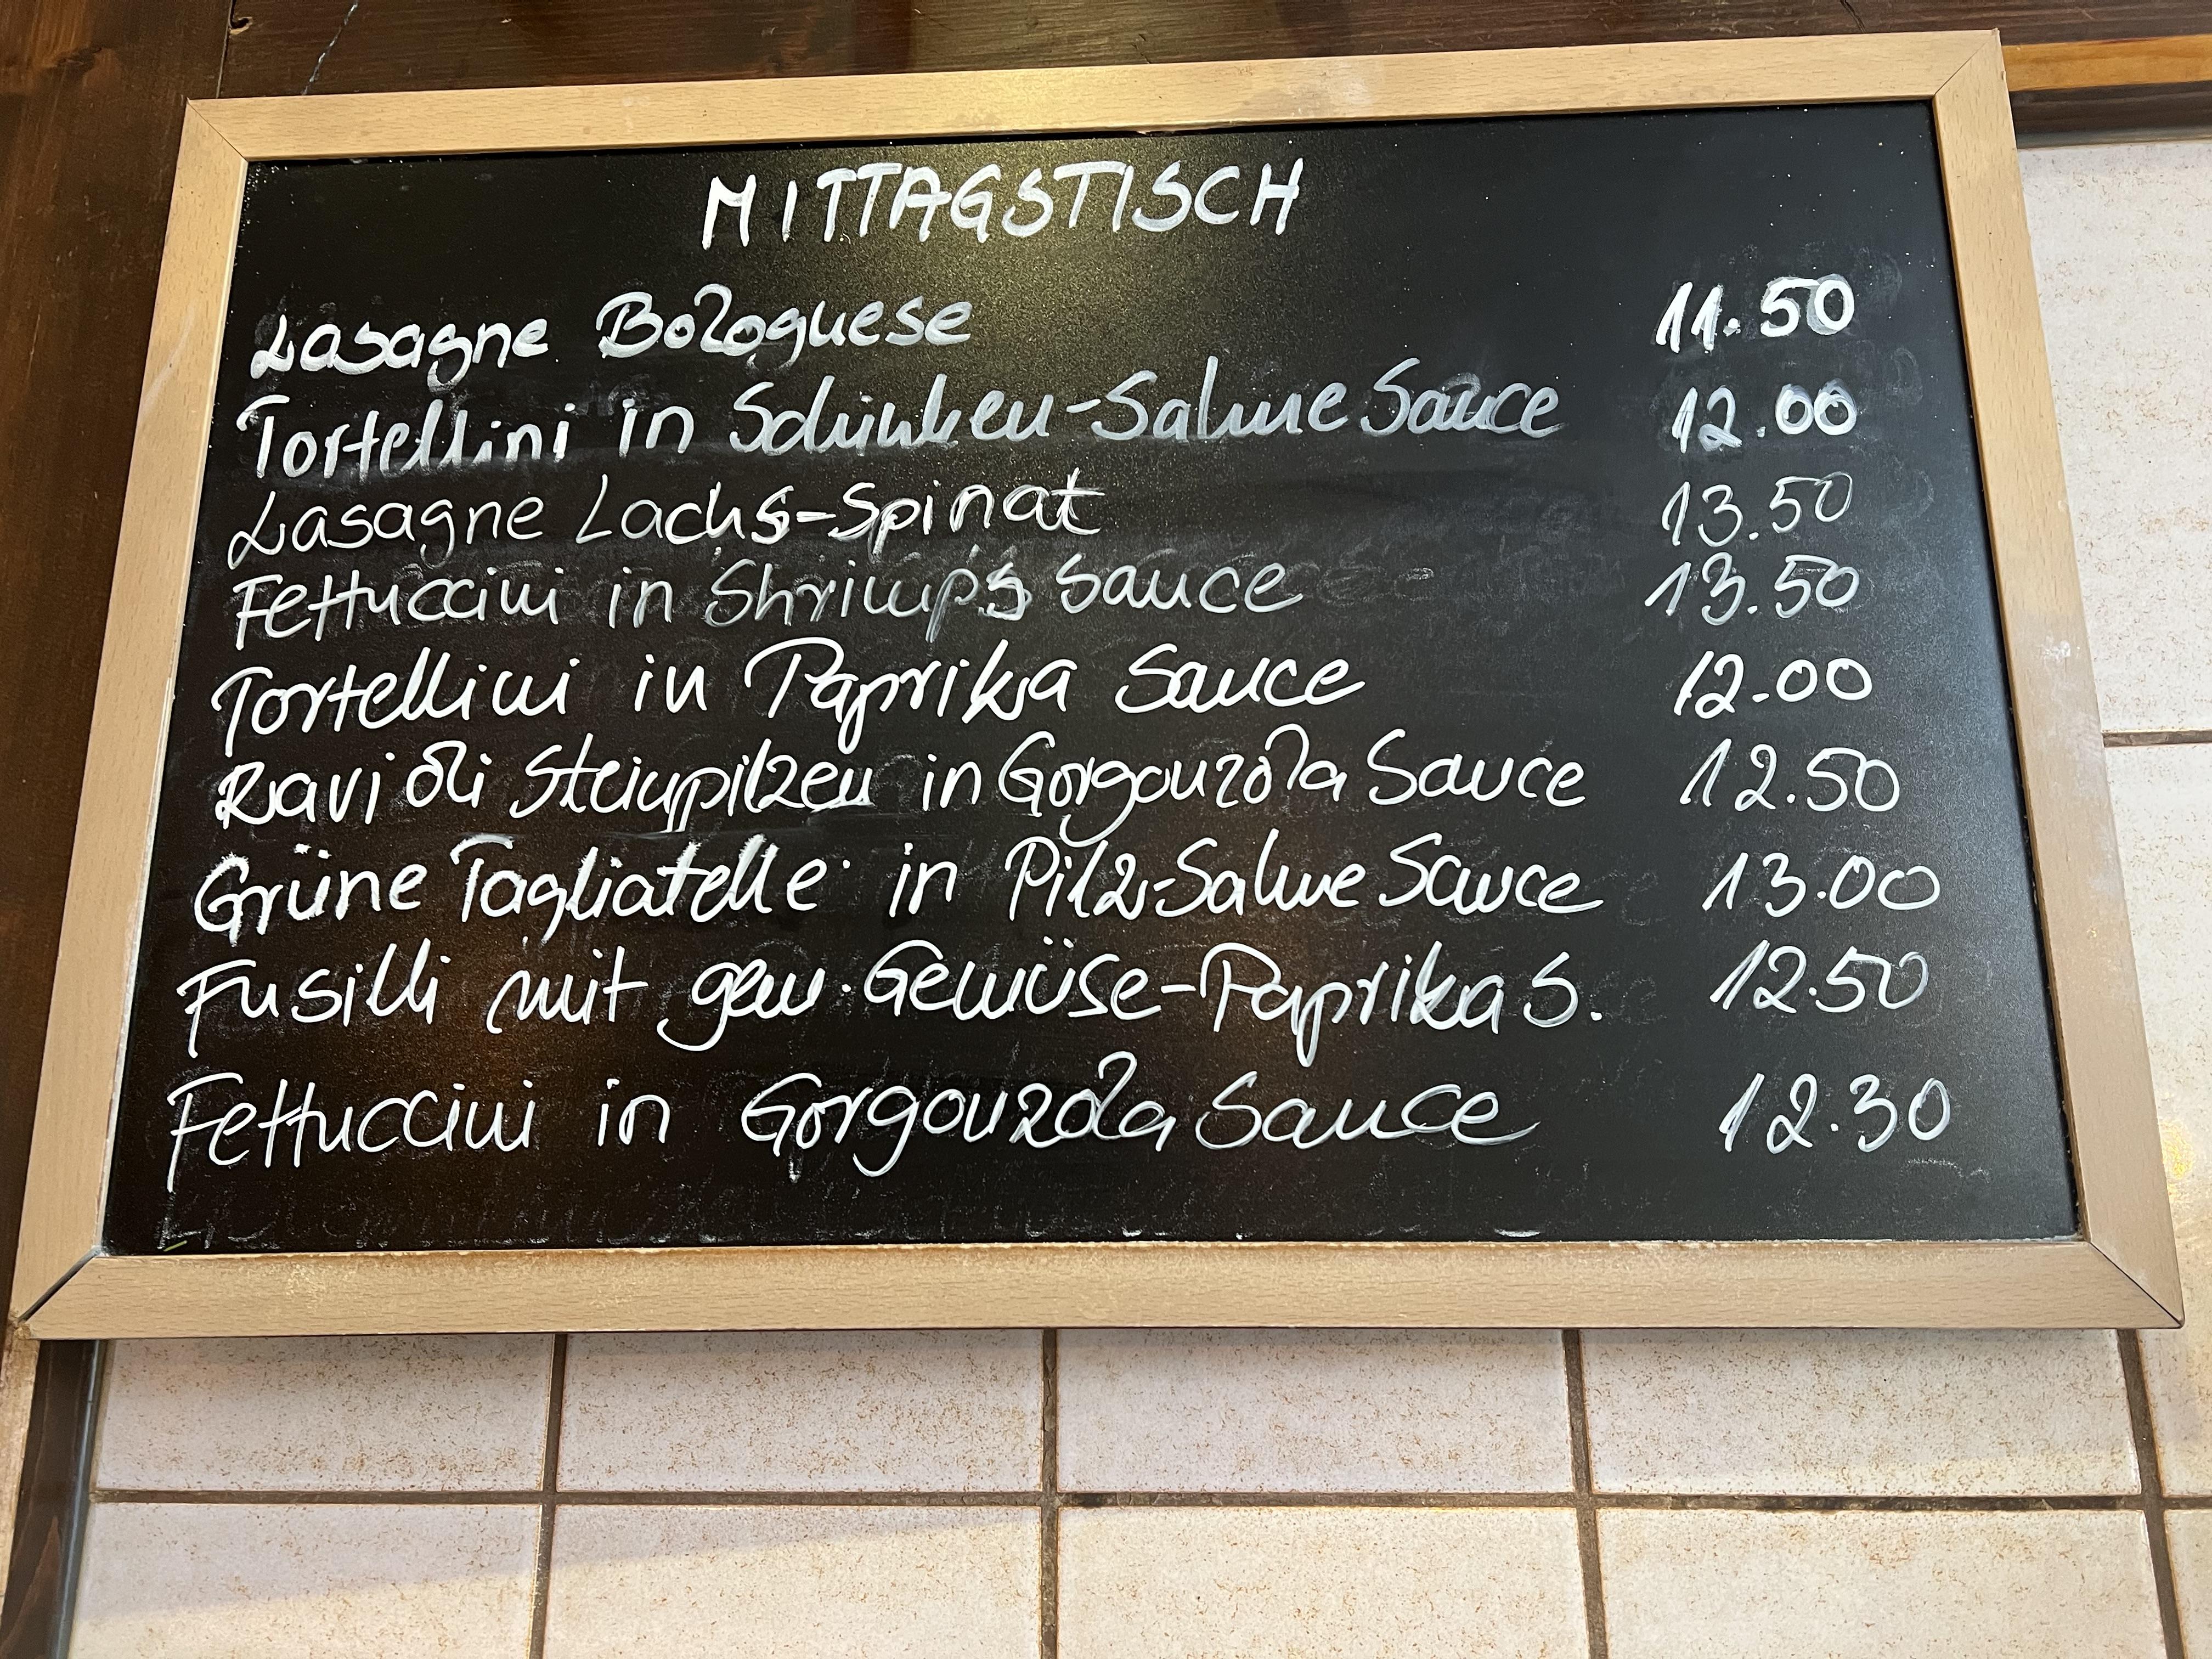 MITTAGSTISCH
Lasagne Bolognese 11.50
Tortellini in Schinken-Sahne Sauce 12.00
Lasagne Lachs-Spinat 13.50
Fettuccini in Shrimps Sauce 13.50
Tortellini in Paprika Sauce 12.00
Ravioli Steinpilzen in Gorgonzola Sauce 12.50
Grüne Tagliatelle in Pilz-Sahne Sauce 13.00
Fusilli mit gem. Gemüse-Paprika S. 12.50
Fettuccini in Gorgonzola Sauce 12.30